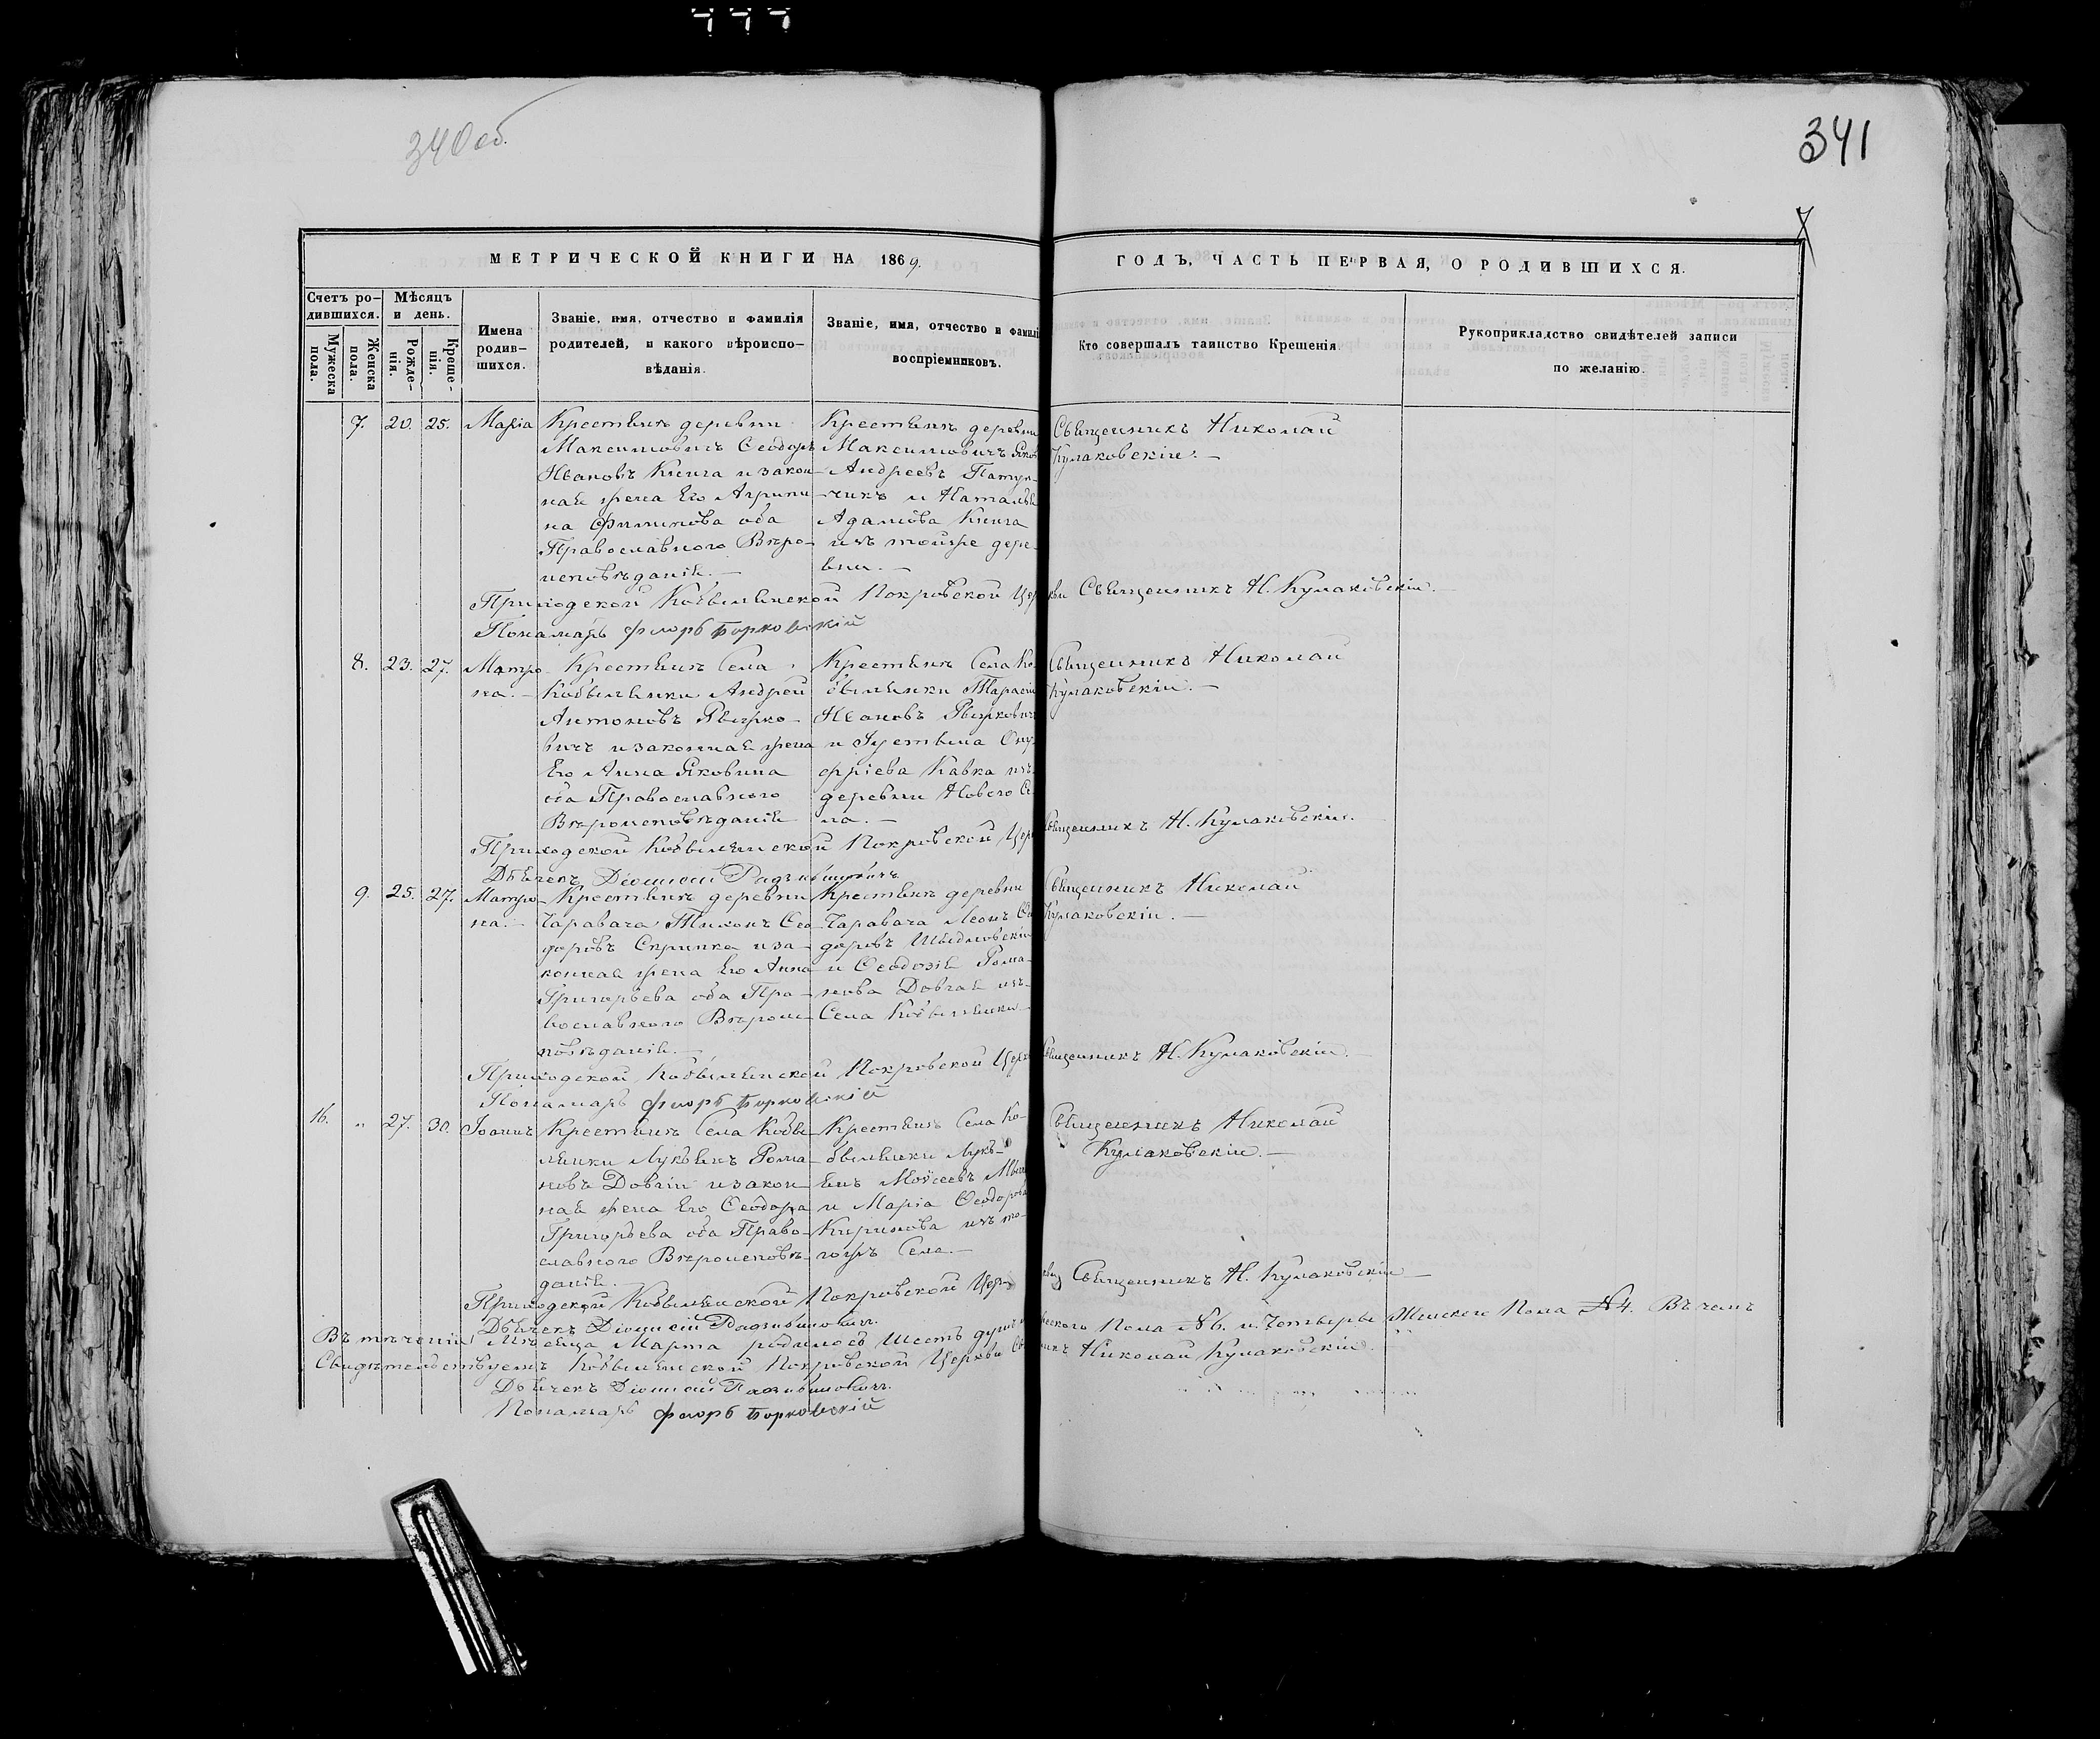 340 об.
341
7
МЕТРИЧЕСКОЙ КНИГИ НА 1869. ГОДЪ, ЧАСТЬ ПЕРВАЯ, О РОДИВШИХСЯ.
Счетъ ро-
дившихся.
Мужеска
пола.
Женска
пола.
Мѣсяцъ
и день.
Рожде-
нія.
Креще-
нія.
Имена
родив-
шихся.
Званіе, имя, отчество и фамилія
родителей, и какого вѣроиспо-
вѣданія.
Званіе, имя, отчество и фамилі
воспріемниковъ.
Кто совершалъ таинство Крещенія.
Рукоприкладство свидѣтелей записи
по желанію.
7. 20. 25. Марія
Крестьянъ деревни
Максимовичъ Ѳеодоръ
Ивановъ Книга и закон-
ная жена Его Агрипи-
на Филипова оба
Православнаго Вѣро-
исповѣданія.—
Крестьянъ деревни
Максимовичъ Яков
Андреевъ
-чикъ и Наталья
Адамова Книга
изъ тойже дере-
вни.—
Священникъ Николай
Кулаковскій.—
Приходской Кобылянской Покровской Церкви Священникъ Н. Кулаковскій.
Пономарь Флоръ Борковскій
8. 23. 27. Матро-
на.—
Крестьянъ Села
Кобылянки Андрей
Антоновъ
вичъ и законная жена
Его Анна Яковина
оба Православнаго
Вѣроисповѣданія
Крестьянъ Села Ко-
былянки Тарасій
Ивановъ
и Іустина Ону-
фріева Кавка изъ
деревни Новаго Се-
ла.—
Священникъ Николай
Кулаковскій.—
Приходской Кобылянской Покровской Цер Священникъ Н. Кулаковскій.
Дьячекъ Діонисій
9. 25. 27. Матро-
на.—
Крестьянъ деревни
Чаравача Тихонъ Ѳео-
доровъ Скрипка и за-
конная жена Его Анна
Григорьева оба Пра-
вославнаго Вѣроис-
повѣданія.—
Крестьянъ деревни
Чаравача Леонъ Ѳео
доровъ
и Ѳеодозія Рома-
нова Довгая изъ
Села Кобылянки—
Священникъ Николай
Кулаковскій.—
Приходской Кобылянской Покровской Церк Священникъ Н. Кулаковскій.—
Пономарь Флоръ Борковскій
16. „ 27. 30. Іоаннъ
Крестьянъ Села Кобы-
лянки Лукьянъ Рома-
новъ Довгій и закон-
ная жена Его Ѳеодора
Григорьева оба Право-
славнаго Вѣроисповѣ-
данія.
Крестьянъ Села Ко-
былянки Лукь-
янъ Моѵсеевъ
и Марія Ѳеодорова
Кирилова изъ то-
гожъ Села.—
Священникъ Николай
Кулаковскій.—
Приходской Кобылянской Покровской Церкви Священникъ Н. Кулаковскій—
Дьячекъ Діонисій
Въ теченіи Мѣсяца Марта родилось Шесть душъ м ескаго Пола №6. и Четверы Женскаго Пола №4. Въ чемъ
Свидѣтельствуемъ Кобылянской Покровской Церкви Св никъ Николай Кулаковскій.
Дьячекъ Діонисій
Пономарь Флоръ Борковскій